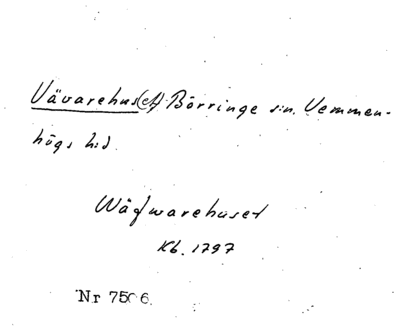 Vävarehus(et) Börringe s:n. Vemmen-
högs hd.
Wäfwarehuset
Kb. 1797
Nr 7506.